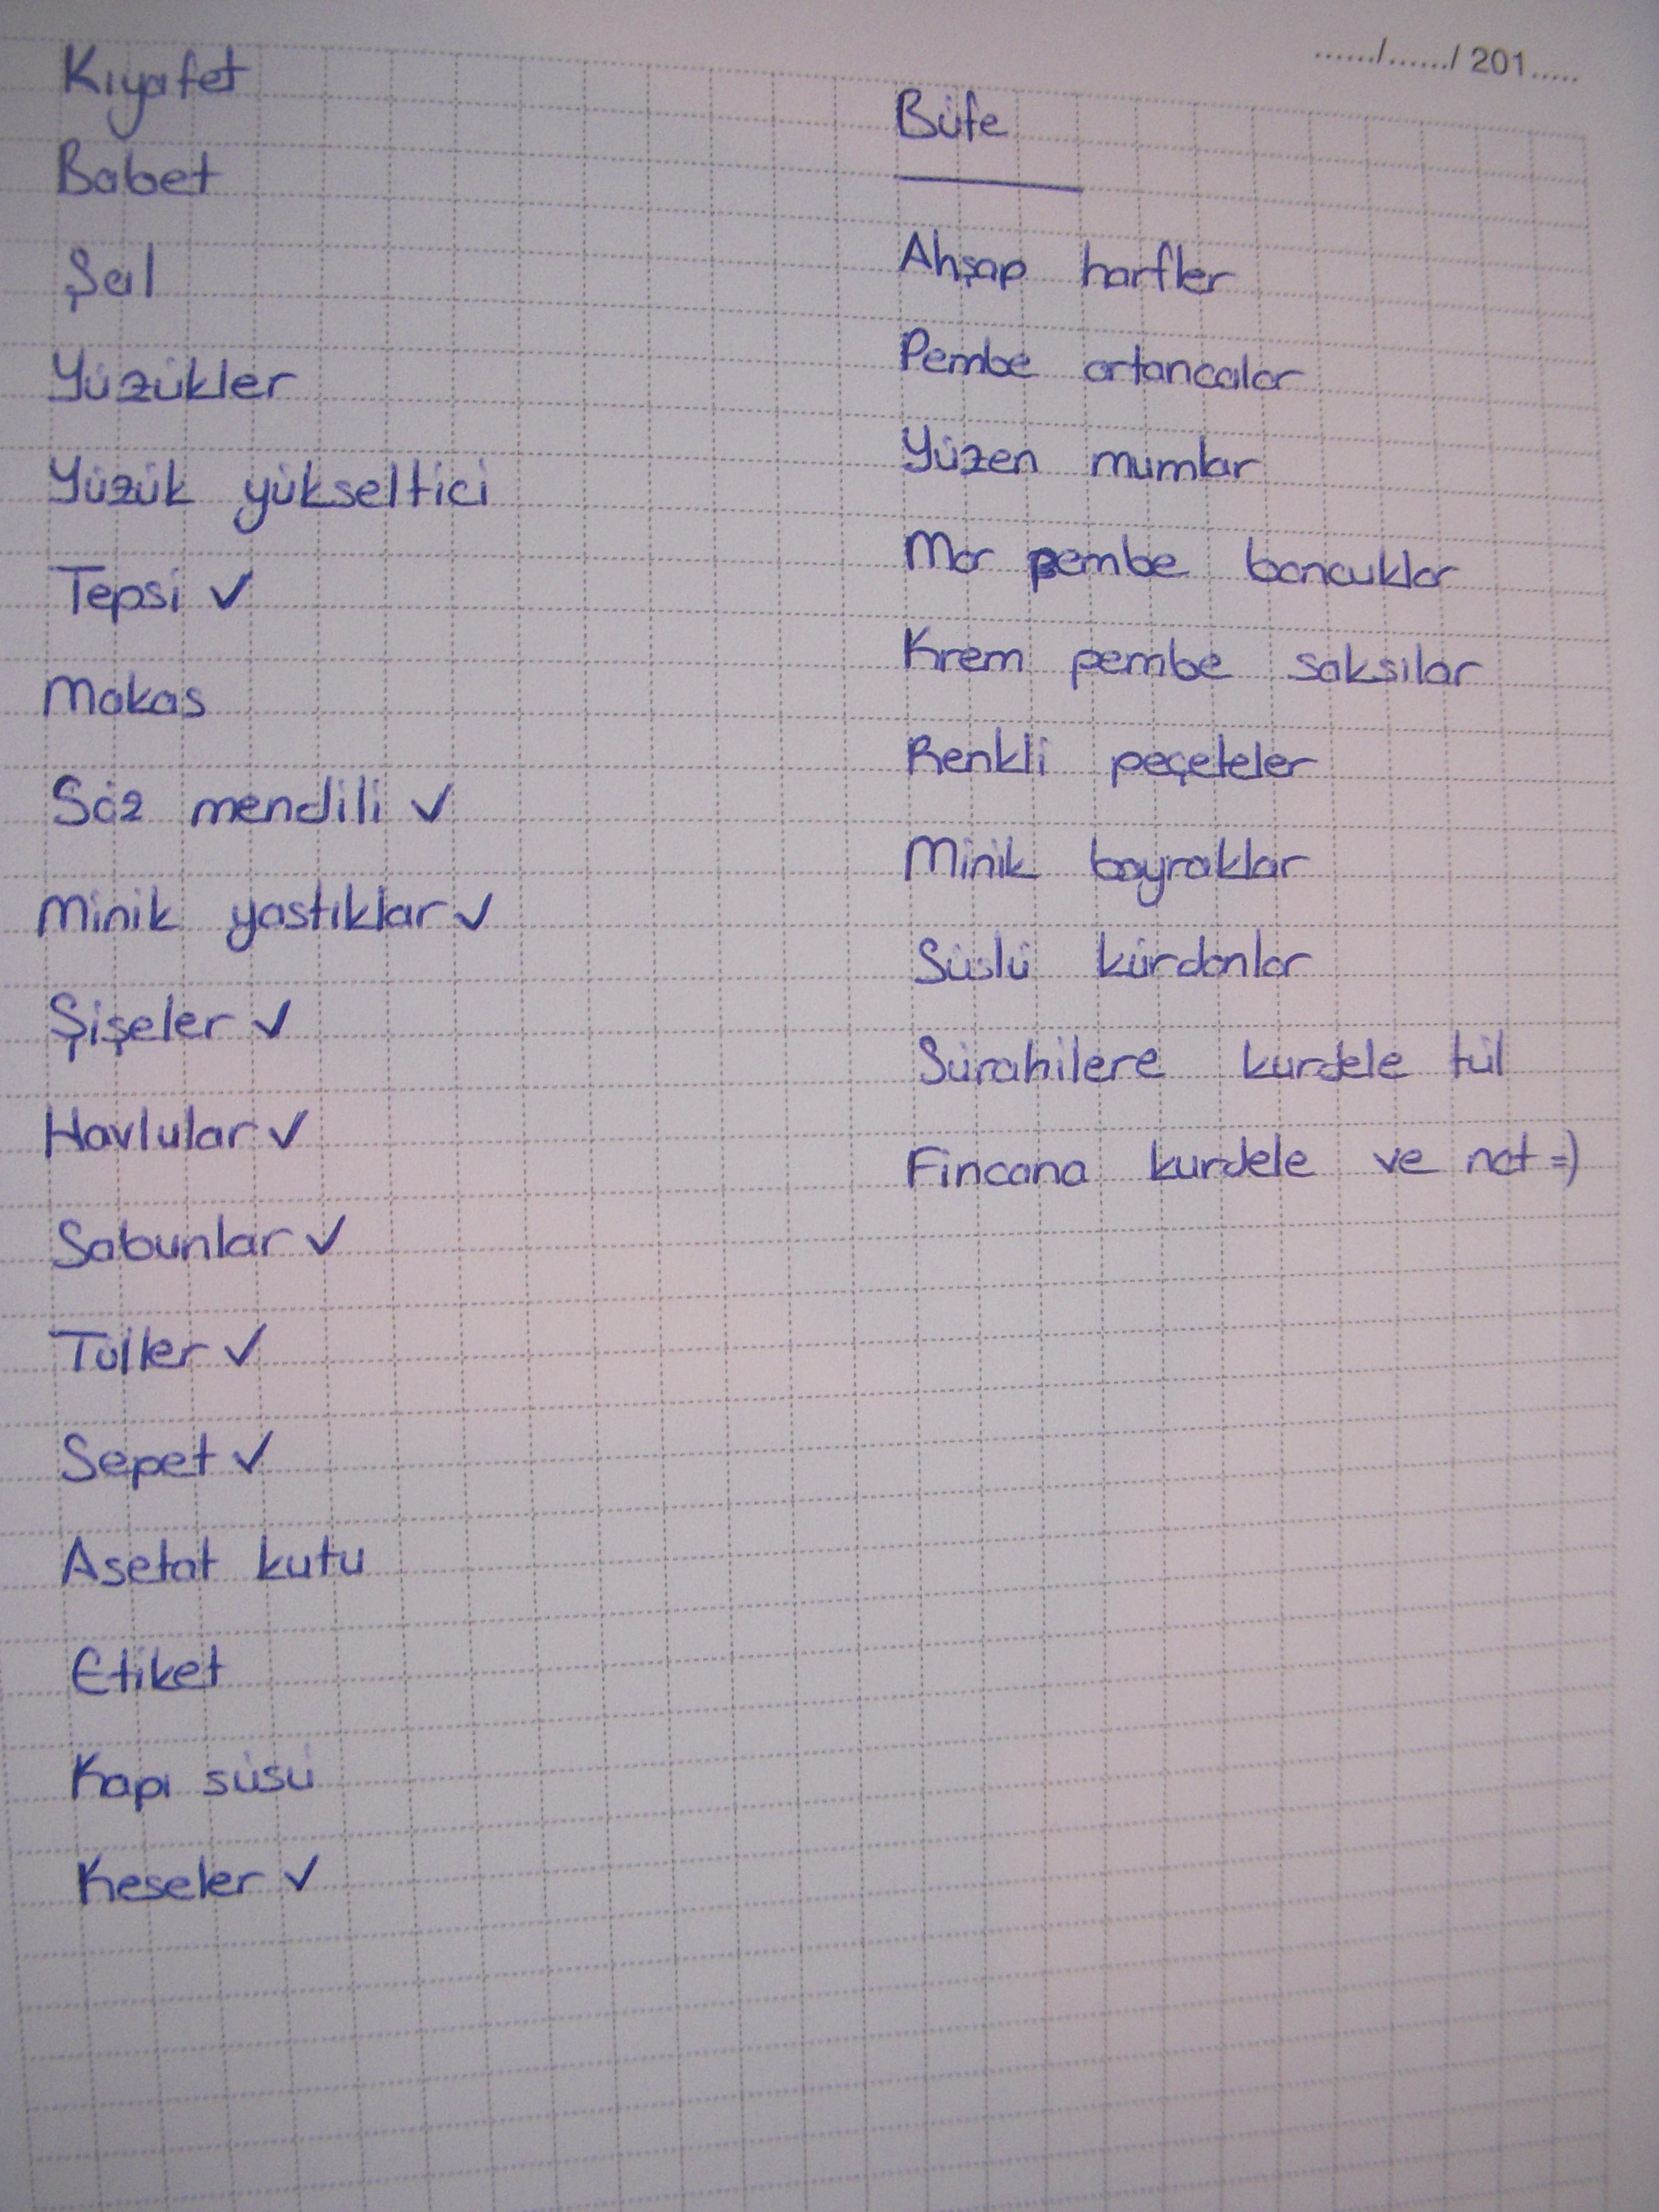 ....../....../ 201.....
Kıyafet
Babet
Şal
Yüzükler
Yüzük yükseltici
Tepsi ✓
Makas
Söz mendili ✓
Minik yastıklar ✓
Şişeler ✓
Havlular ✓
Sabunlar ✓
Tüller ✓
Sepet ✓
Asetat kutu
Etiket
Kapı süsü
Keseler ✓
Büfe
Ahşap harfler
Pembe ortancalar
Yüzen mumlar
Mor pembe boncuklar
Krem pembe saksılar
Renkli peçeteler
Minik bayraklar
Süslü kürdanlar
Sürahilere kurdele tül
Fincana kurdele ve not =)